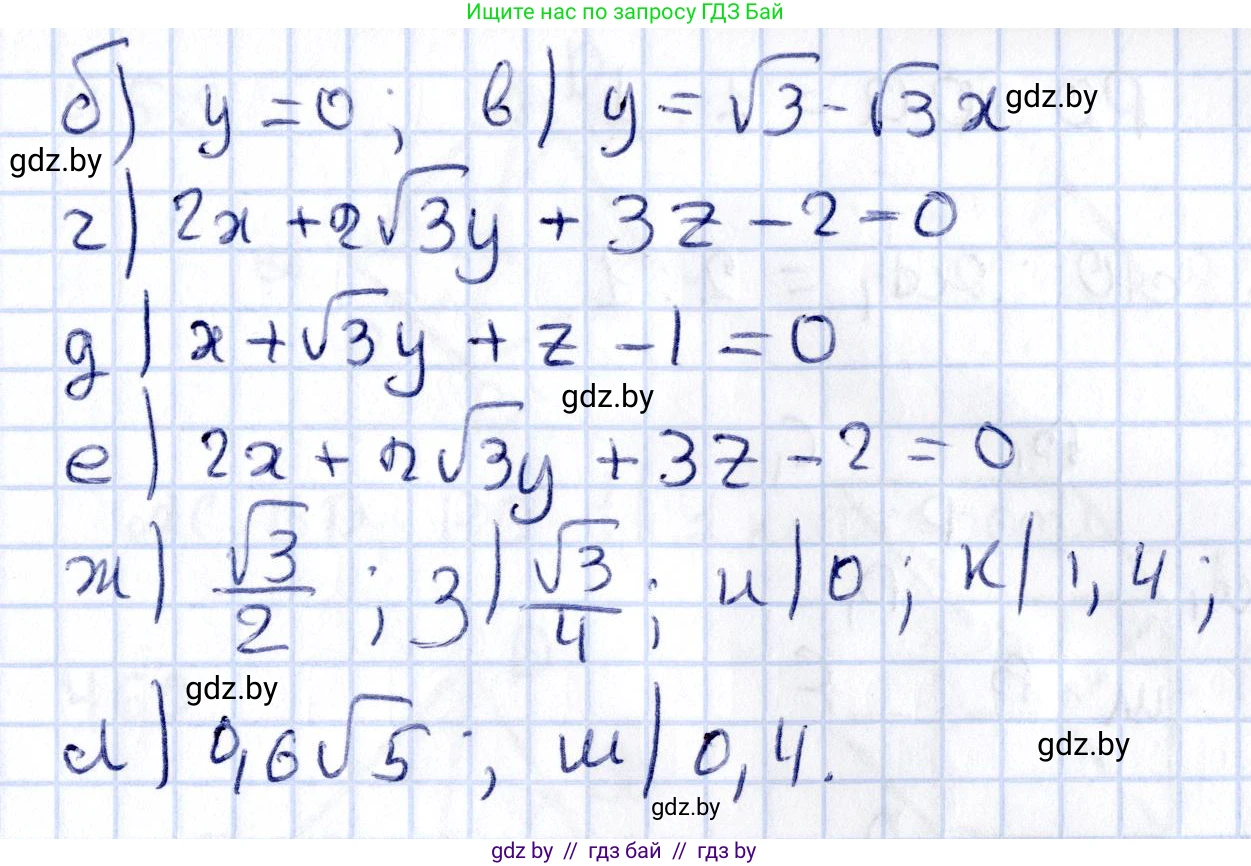 Ищите нас по запросу ГДЗ Бай
б) y = 0; в) y = √3 - √3 x gdz.by
gdz.by
г) 2x + 2√3y + 3z - 2 = 0
д) x + √3y + z - 1 = 0
gdz.by
е) 2x + 2√3y + 3z - 2 = 0
ж) √3/2 ; з) √3/4 ; и) 0 ; к) 1,4 ;
gdz.by
л) 0,6√5 ; м) 0,4.
gdz.by
gdz.by
gdz by // гдз бай // гдз by